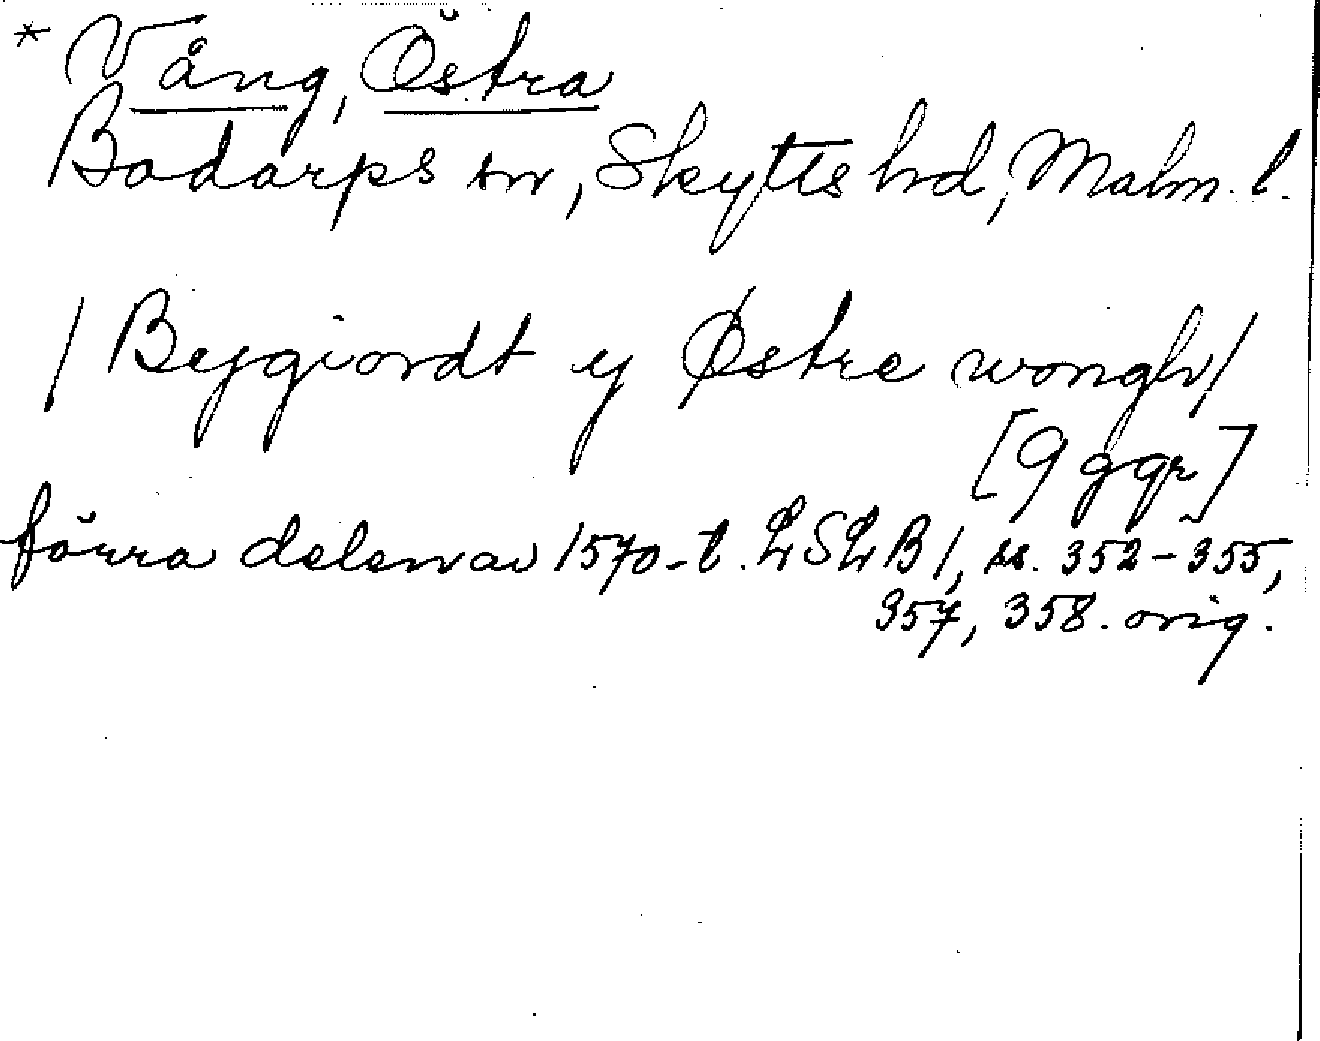 * Vång, Östra
Bodarps sn, Skytts hrd, Malm. l.
/ Bejgiordt y Østre wongh/
[9 ggr]
förra delen av 1570-t. LSLB 1, ss. 352-355,
357, 358. orig.